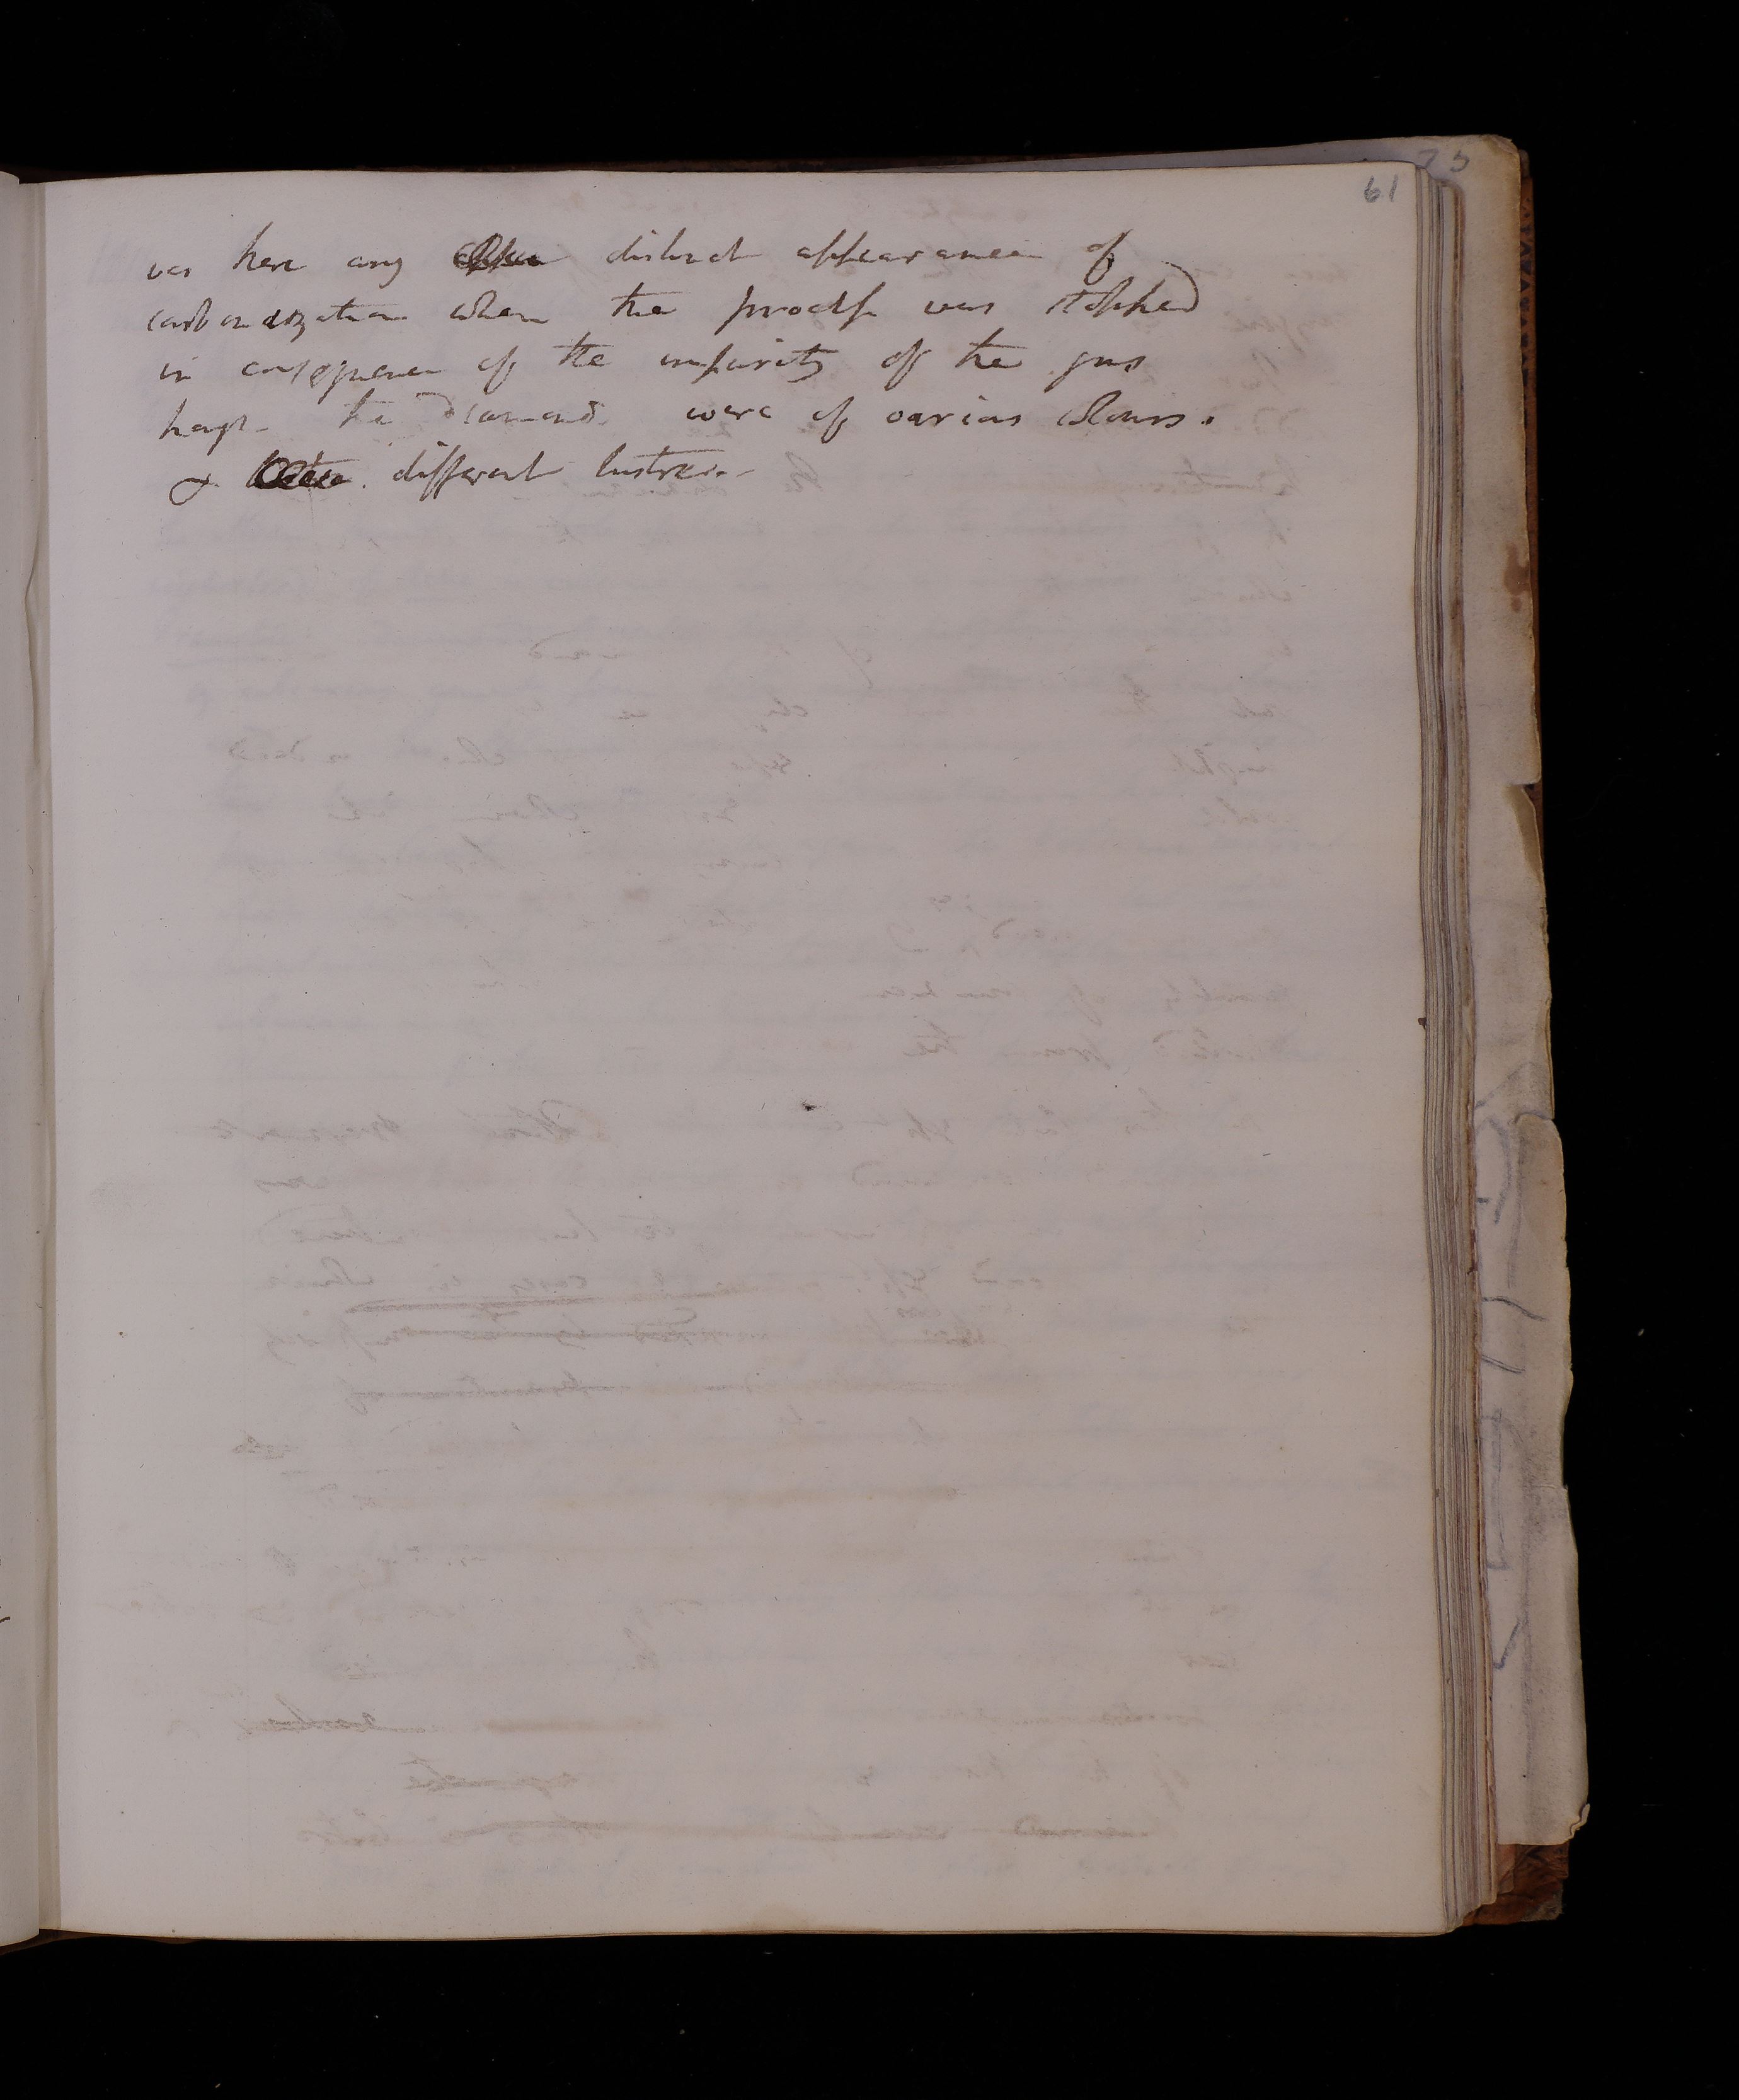 61
was here any distinct appearance of
carbonization when the process was stopped
in consequence of the impurity of the gas
the diamonds were of various colours.
& different lustres.-